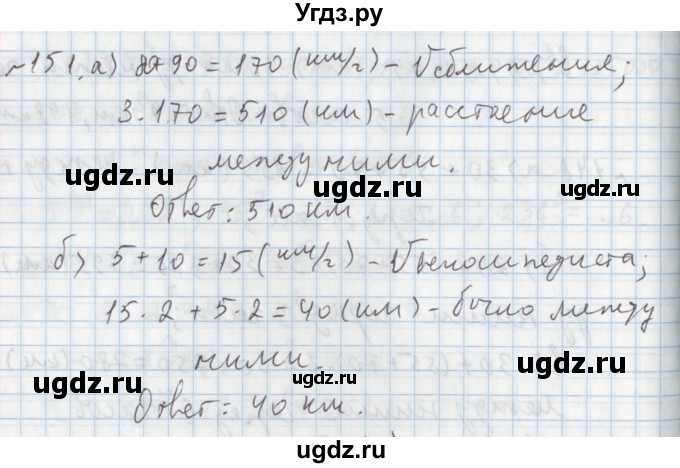 Угдз.ру
№151. а) 80+90 = 170 (км/г) - Vсближения;
3·170 = 510 (км) - расстояние
между ними.
ugdz.ru ugdz.ru
Ответ: 510 км.
б) 5+10 = 15 (км/г) - Vвелосипедиста;
15·2 + 5·2 = 40 (км) - было между
ними.
ugdz.ru ugdz.ru
Ответ: 40 км.
ugdz.ru